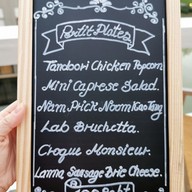 Petit Plates
Tandoori Chicken Popcorn
Mini Caprese Salad.
Nam Prick Noom Kao Tang
Lab Bruchetta.
Croque Monsieur.
Lanna Sausage Brie Cheese.